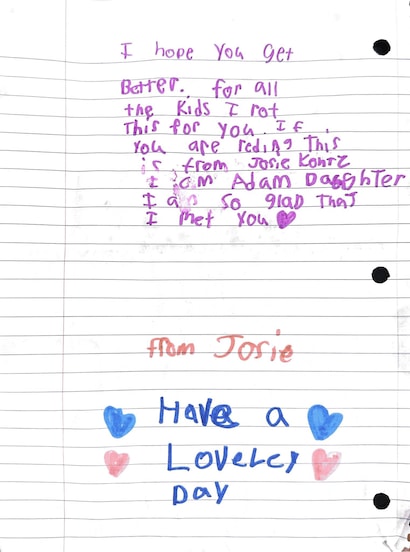 I hope You Get
Better. for all
the Kids I rot
This for you. If
You are reding This
is from Josie Kohtz
I am Adam Daughter
I am so glad That
I met You
from Josie
Have a
Lovelcy
Day